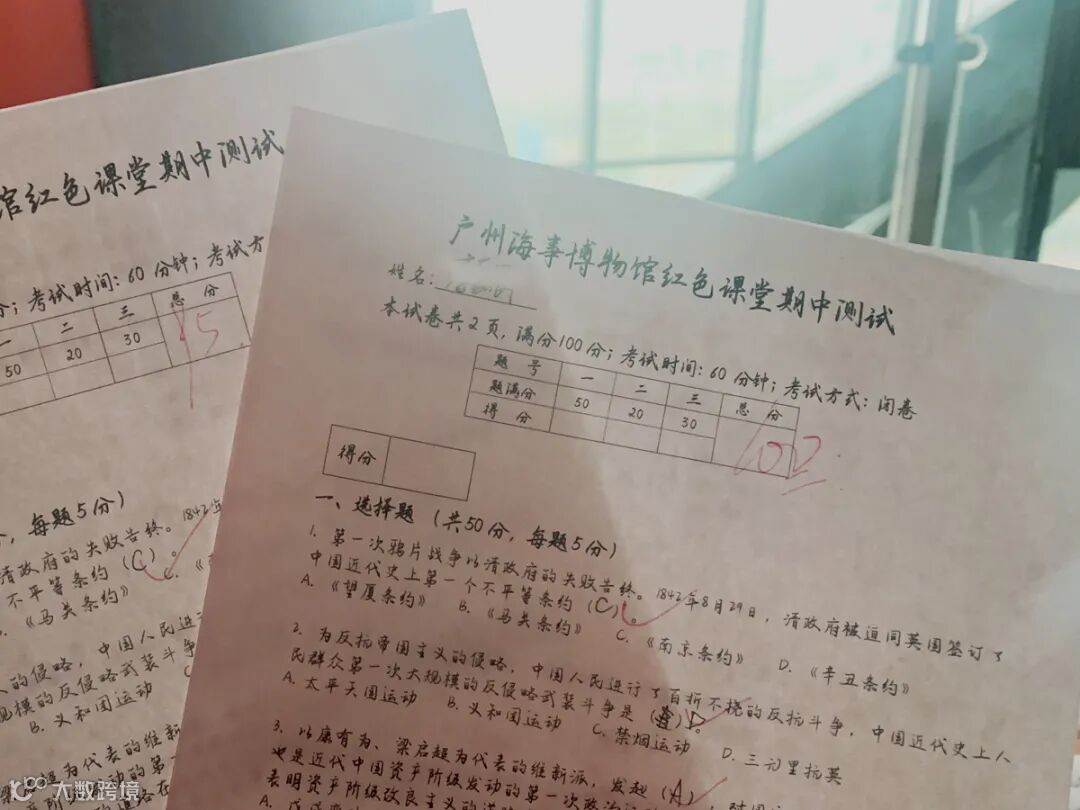 馆红色课堂期中测试
分；考试时间：60 分钟；考试方
一 二 三 总 分
50 20 30 95
，每题5分）
清政府的失败告终。1842年
不平等条约（C）。
《马关条约》 C.
的侵略，中国人民进行
规模的反侵略武装斗争
B. 义和团运动
为代表的维新
阶级发动的第一
广州海事博物馆红色课堂期中测试
姓名：
本试卷共2页，满分100分；考试时间：60 分钟；考试方式：闭卷
题 号 一 二 三 总 分
题满分 50 20 30 102
得 分
得分
一、选择题 （共50分，每题5分）
1. 第一次鸦片战争以清政府的失败告终。1842年8月29日，清政府被迫同英国签订了
中国近代史上第一个不平等条约（C）。
A. 《望厦条约》 B. 《马关条约》 C. 《南京条约》 D. 《辛丑条约》
2. 为反抗帝国主义的侵略，中国人民进行了百折不挠的反抗斗争，中国近代史上人
民群众第一次大规模的反侵略武装斗争是（D）
A. 太平天国运动 B. 义和团运动 C. 禁烟运动 D. 三元里抗英
3. 以康有为、梁启超为代表的维新派，发起（A），
也是近代中国资产阶级发动的第一次政治
表明资产阶级改良主义的
大数跨境